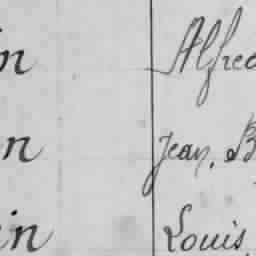 in Alfred
n Jean, B
in Louis,